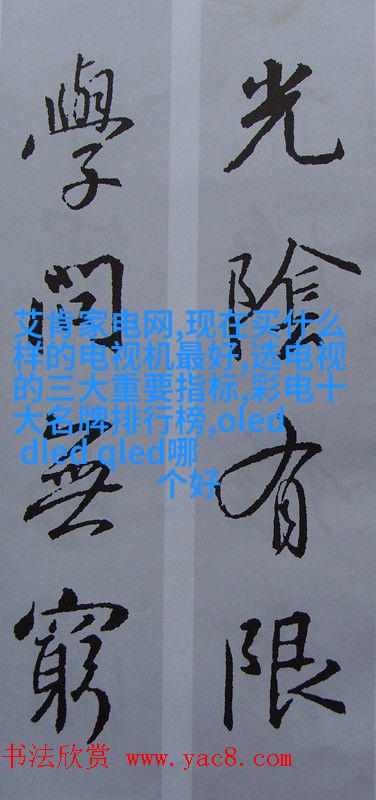 光陰有限
學問無窮
艾肯家电网,现在买什么
样的电视机最好,选电视
的三大重要指标,彩电十
大名牌排行榜,oled
dled qled哪
个好
书法欣赏 www.yac8.com